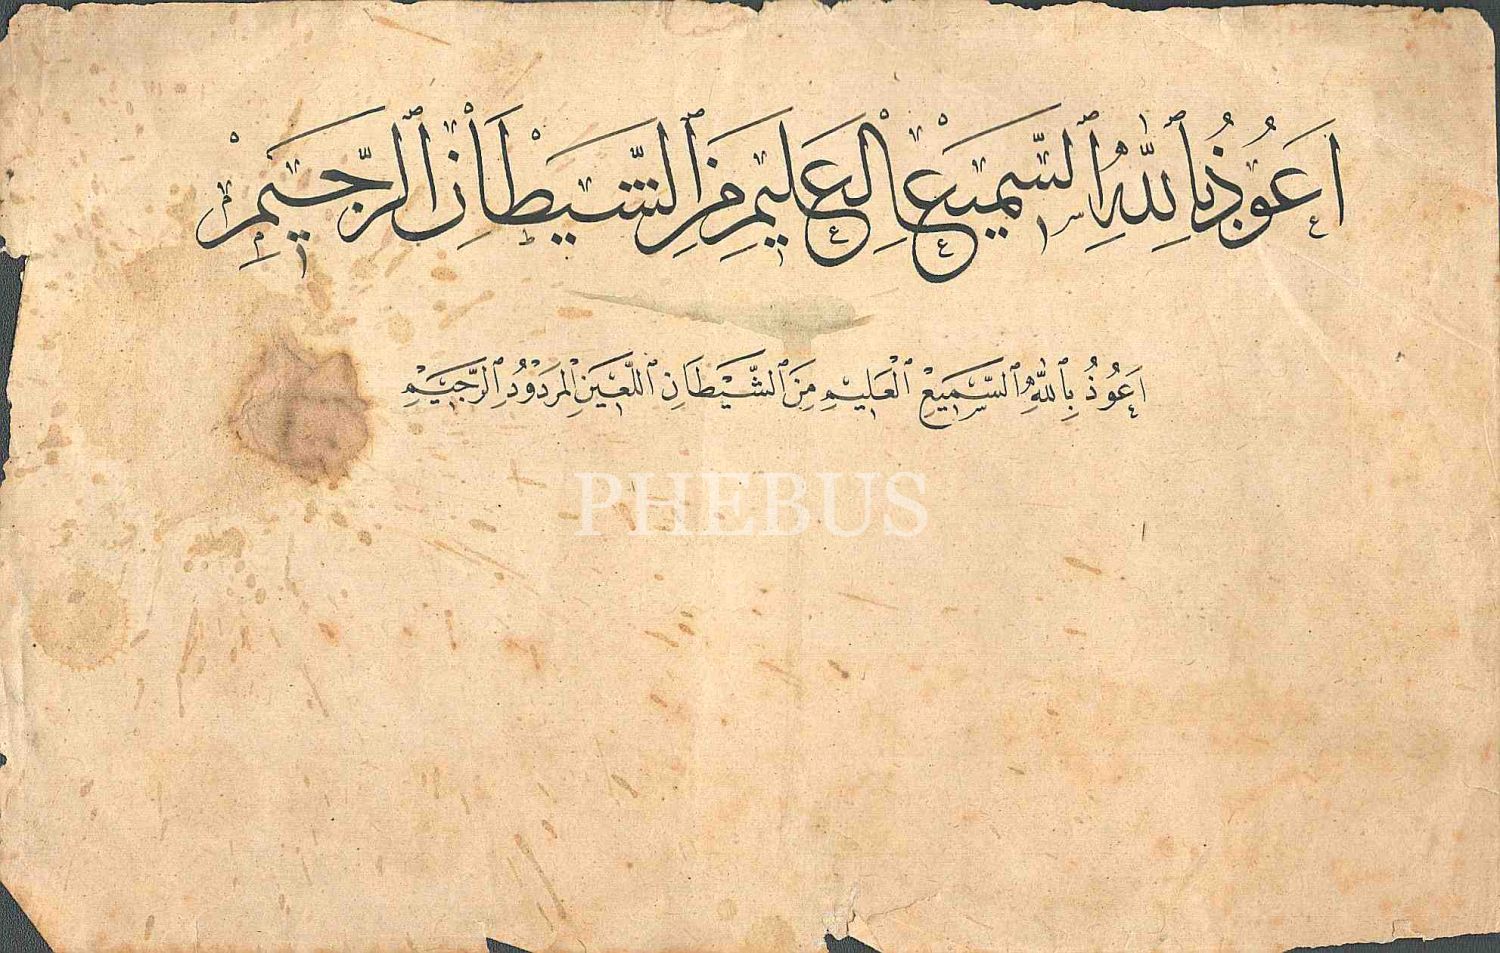 اَعُوذُ بِاللّٰهِ السَّمِيعِ الْعَلِيمِ مِنَ الشَّيْطَانِ الرَّجِيمِ
اَعُوذُ بِاللّٰهِ السَّمِيعِ الْعَلِيمِ مِنَ الشَّيْطَانِ اللَّعِينِ الْمَرْدُودِ الرَّجِيمِ
PHEBUS